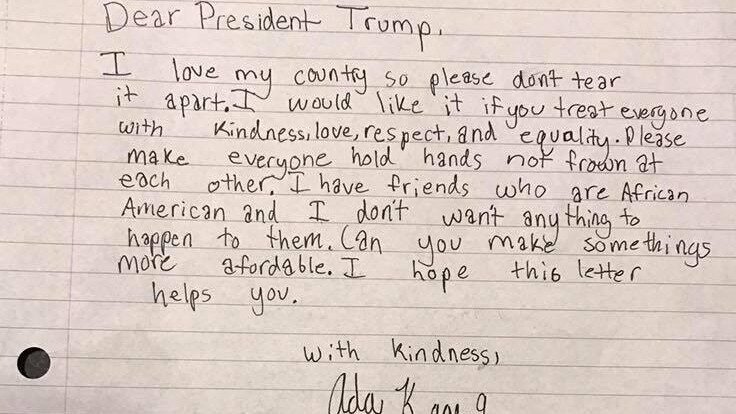 Dear President Trump,
I love my country so please don't tear
it apart. I would like it if you treat everyone
with kindness, love, respect, and equality. Please
make everyone hold hands not frown at
each other. I have friends who are African
American and I don't want any thing to
happen to them. Can you make somethings
more afordable. I hope this letter
helps you.
with kindness,
Ada K age 9